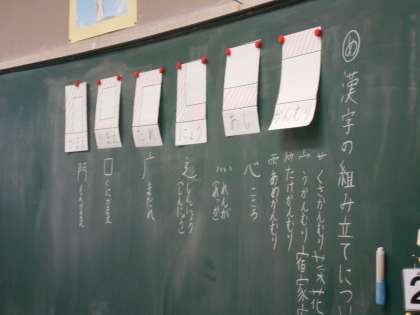 め 漢字の組み立てについ
かんむり
艹 くさかんむり 茶 花
宀 うかんむり 宿 家
⺮ たけかんむり
雨 あめかんむり
あし
心 こころ
灬 れんが
(れっか)
にょう
辶 しんにょう
(しんにゅう)
たれ
广 まだれ
かまえ
囗 くにがまえ
門 もんがまえ
2